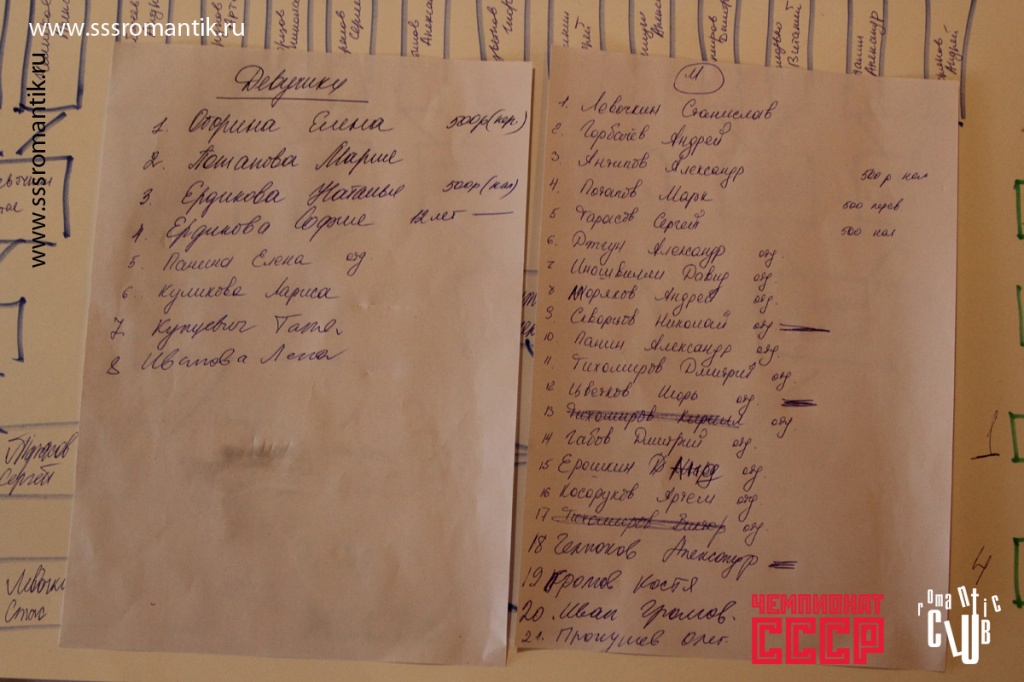 www.sssromantik.ru
www.sssromantik.ru
Девушки
1. Огорина Елена 500р(пер.)
2. Потапова Марие
3. Ердикова Наталья 500р(нал)
4. Ердикова Софие 12 лет —
5. Панина Елена отд.
6. Куликова Лариса
7. Таня
8 Иванова Лена
М
1. Левочкин Станислав
2. Горбачёв Андрей
3. Антипов Александр 500 р нал
4. Потапов Марк 500 перев
5 Тарасов Сергей 500 нал
6. Джгун Александр отд.
7 Иношвилли Давид отд.
8 Моряков Андрей отд.
9. Скворцов Николай отд
10. Панин Александр отд.
11. Тихомиров Дмитрий отд.
12 Цветков Игорь отд.
13 Тихомиров Кирилл отд.
14 Габов Дмитрий отд.
15 Ерошкин отд.
16 Косоруков Артем отд.
17 Тихомиров Виктор отд.
18 Александр
19 Громов Костя
20. Иван Громов.
21. Прокушев Олег
Сергей
Левочк
Стас
1
4
ЧЕМПИОНАТ
СССР
romantic
CLUB